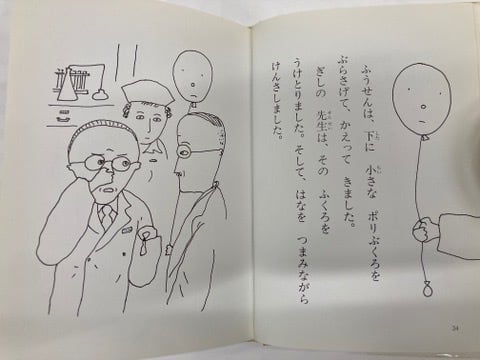 ふうせんは、下に 小さな ポリぶくろを
ぶらさげて、かえって きました。
ぎしの 先生は、その ふくろを
うけとりました。そして、はなを つまみながら
けんさしました。
34